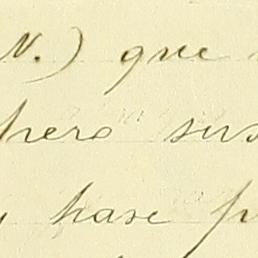 N.) que
hero sus
y hase